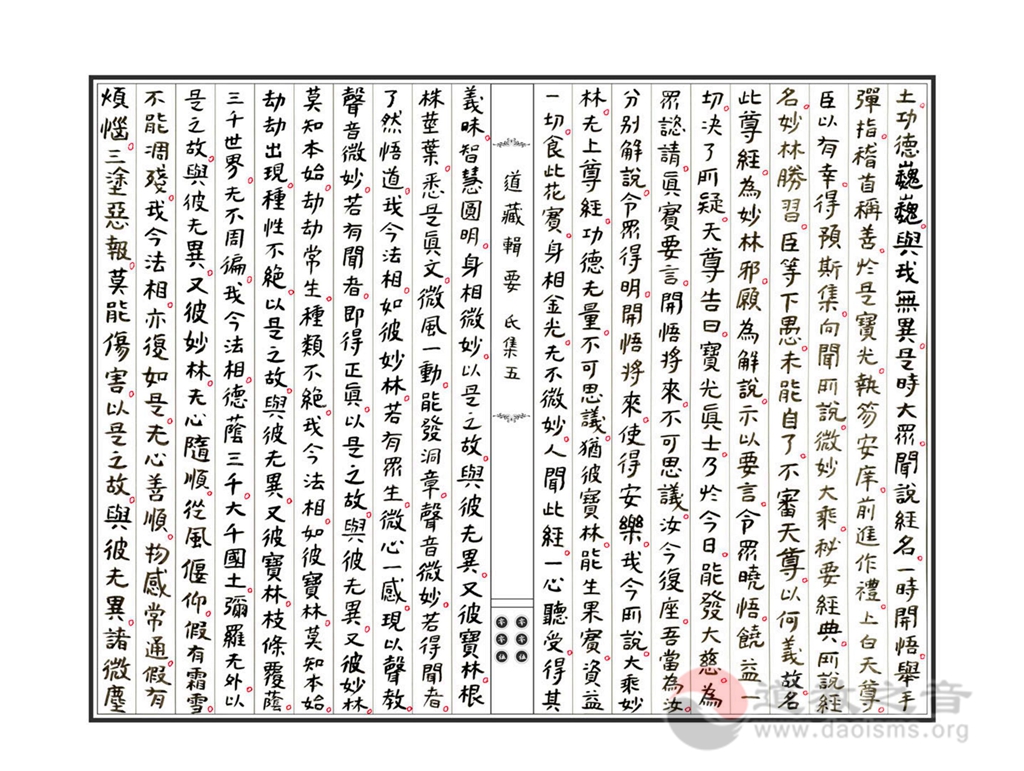 土功德巍巍與我無異是時大眾聞說經名一時開悟舉手
彈指稽首稱善於是寶光執笏安庠前進作禮上白天尊
臣以有幸得預斯集向聞所說微妙大乘秘要經典所說經
名妙林勝習臣等下愚未能自了不審天尊以何義故名
此尊經為妙林邪願為解說示以要言令眾曉悟饒益一
切決了所疑天尊告曰寶光真士乃於今日能發大慈為
眾諮請真實要言開悟將來不可思議汝今復座吾當為汝
分别解說令眾得明開悟將來使得安樂我今所說大乘妙
林无上尊經功德无量不可思議猶彼寶林能生果實資益
一切食此花實身相金光无不微妙人聞此經一心聽受得其
道藏輯要 氐集五
義味智慧圓明身相微妙以是之故與彼无異又彼寶林根
株莖葉悉是真文微風一動能發洞章聲音微妙若得聞者
了然悟道我今法相如彼妙林若有眾生微心一感現以聲教
聲音微妙若有聞者即得正真以是之故與彼无異又彼妙林
莫知本始劫劫常生種類不絕我今法相如彼寶林莫知本始
劫劫出現種性不絕以是之故與彼无異又彼寶林枝條覆蔭
三千世界无不周徧我今法相德蔭三千大千國土彌羅无外以
是之故與彼无異又彼妙林无心隨順從風偃仰假有霜雪
不能凋殘我今法相亦復如是无心善順物感常通假有
煩惱三塗惡報莫能傷害以是之故與彼无異諸微塵
道教之音
www.daoisms.org